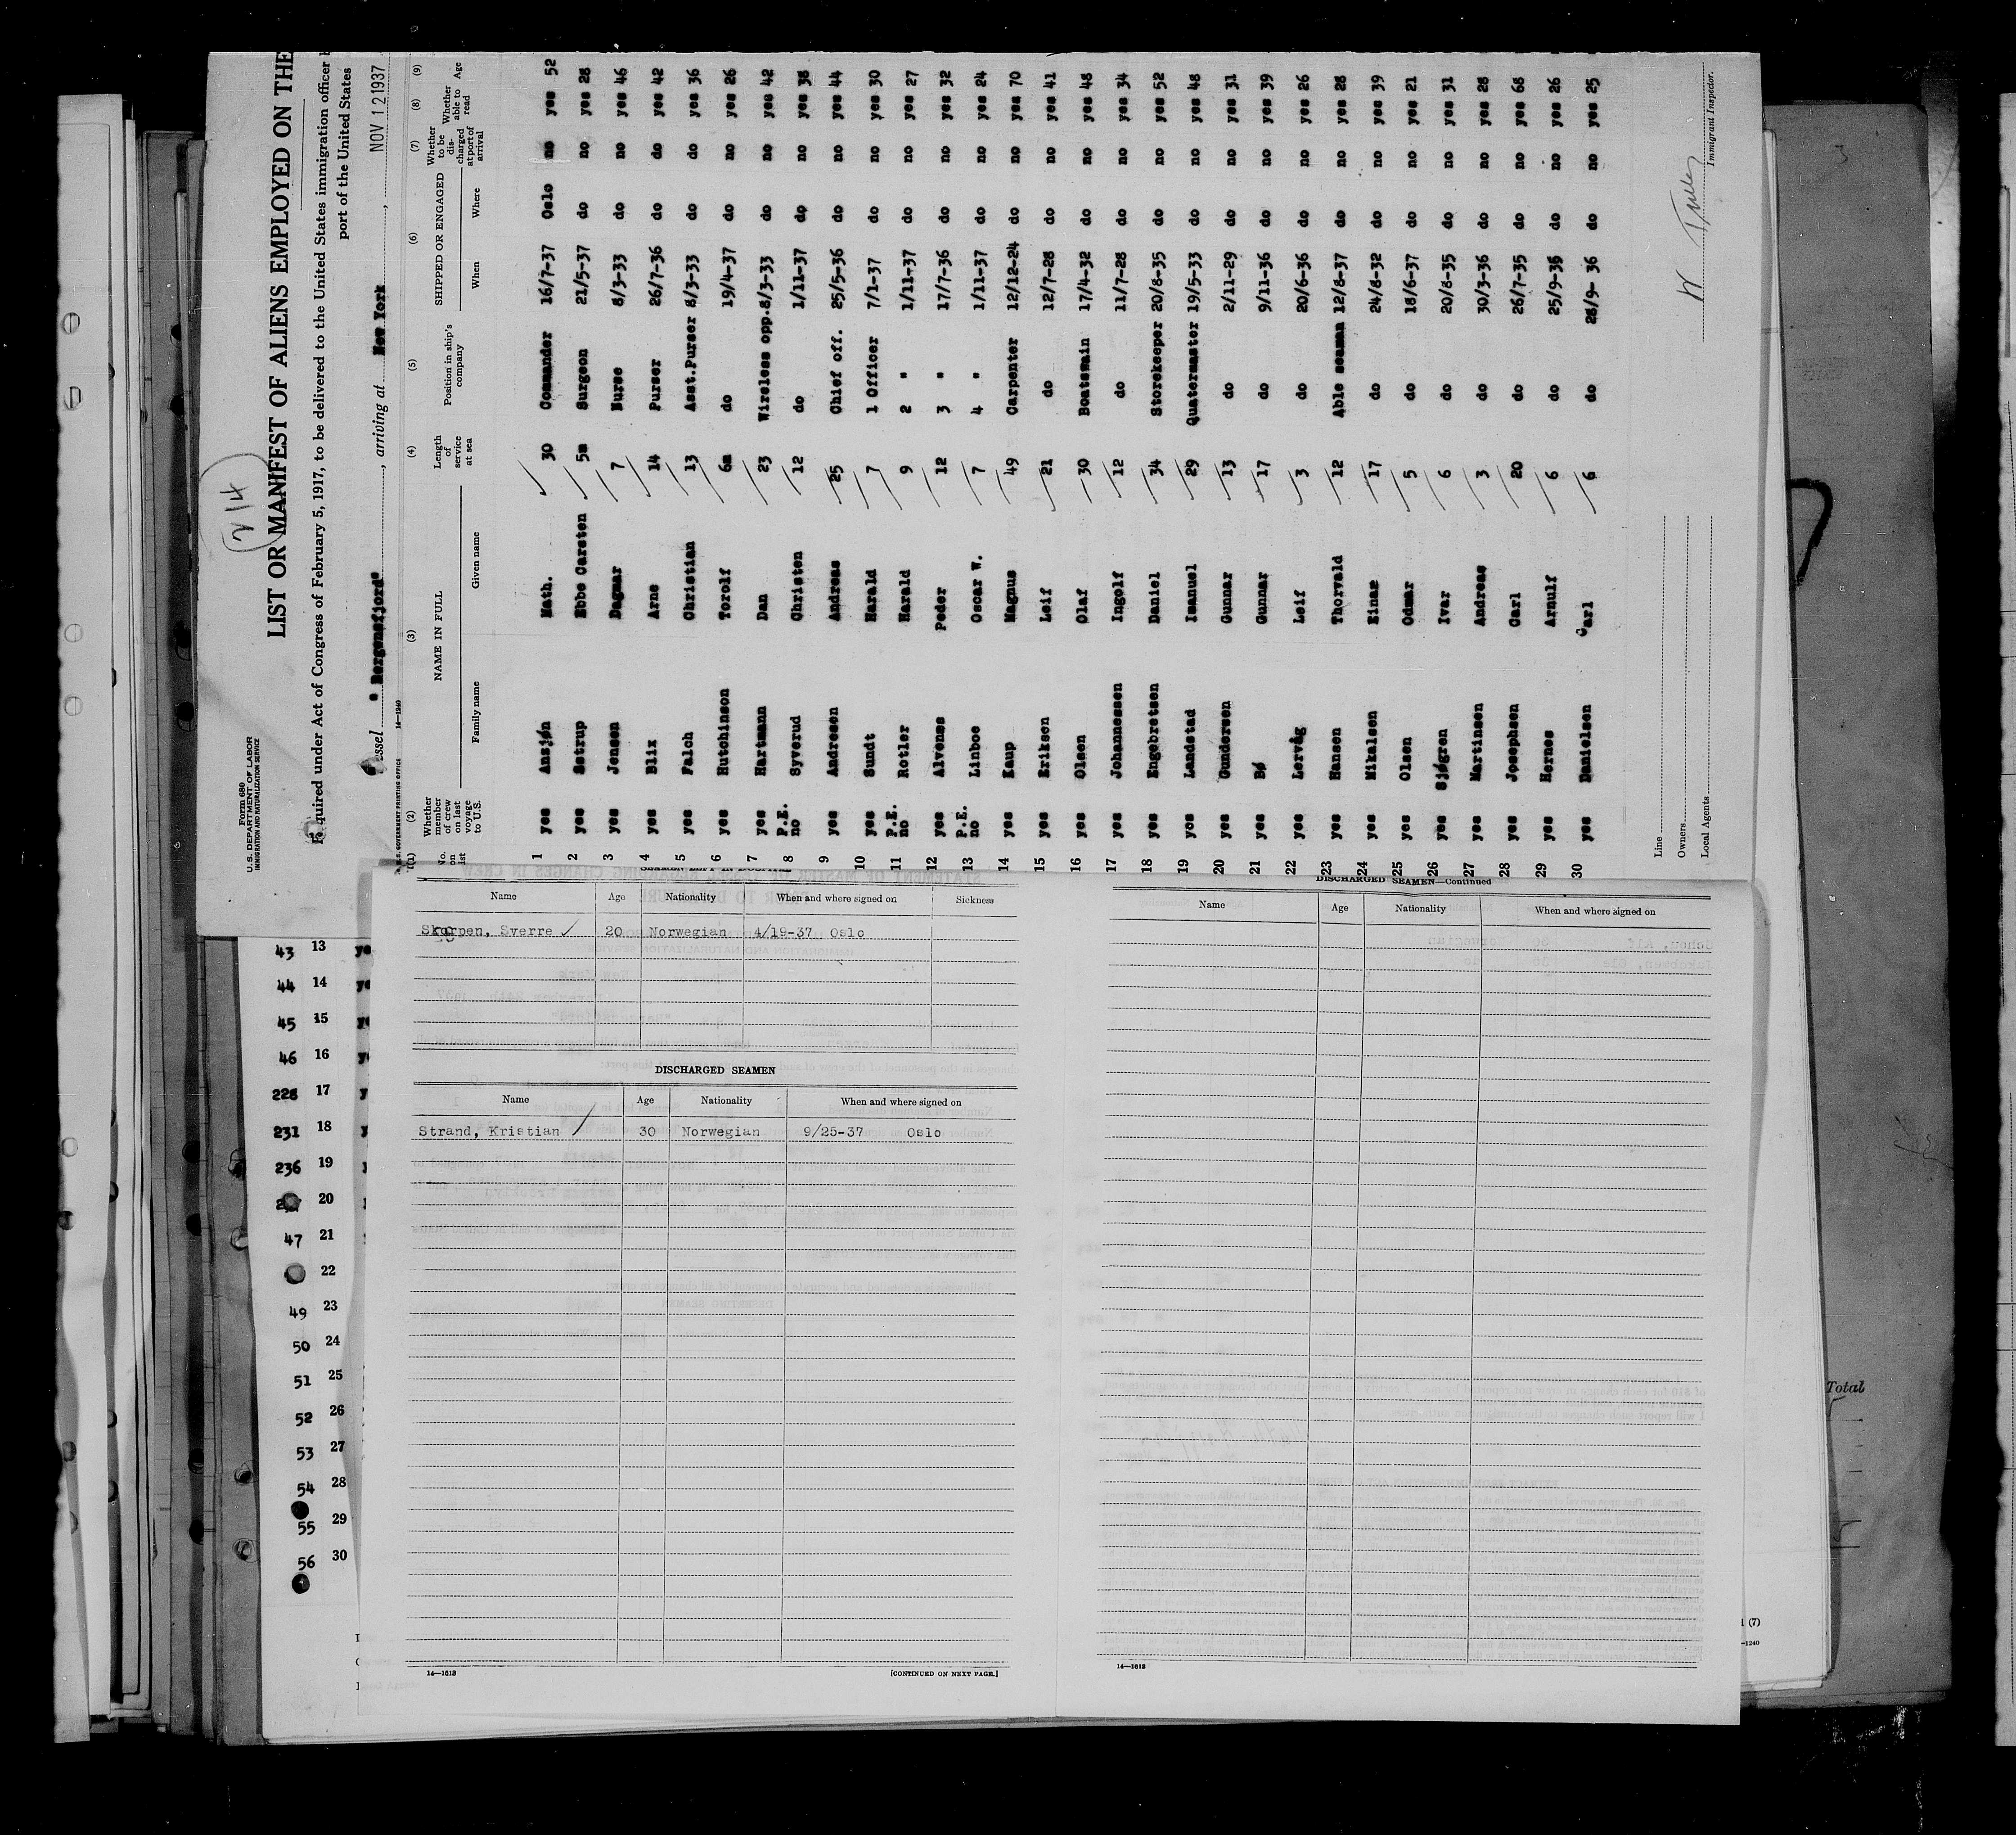 214
Form 680
U. S. DEPARTMENT OF LABOR
IMMIGRATION AND NATURALIZATION SERVICE
LIST OR MANIFEST OF ALIENS EMPLOYED ON THE
Required under Act of Congress of February 5, 1917, to be delivered to the United States immigration officer
port of the United States
Vessel "Bergensfjord", arriving at New York, NOV 12 1937
U.S. GOVERNMENT PRINTING OFFICE 14—1240
(1) (2) (3) (4) (5) (6) (7) (8) (9)
No. on list
Whether member of crew on last voyage to U.S.
NAME IN FULL
Family name Given name
Length of service at sea
Position in ship's company
SHIPPED OR ENGAGED
When Where
Whether to be discharged at port of arrival
Whether able to read
Age
1 yes Ansjøn Math. 30 Commander 16/7-37 Oslo no yes 52
2 yes Sstrup Ebbe Carsten 5m Surgeon 21/5-37 do no yes 28
3 yes Jensen Dagmar 7 Nurse 8/3-33 do no yes 46
4 yes Blix Arne 14 Purser 26/7-36 do do yes 42
5 yes Falch Christian 13 Asst.Purser 8/3-33 do do yes 36
6 yes Hutchinson Torolf 6m do 19/4-37 do no yes 26
7 yes Hartmann Dan 23 Wireless opp. 8/3-33 do no yes 42
8 P.E. no Syverud Christen 12 do 1/11-37 do no yes 38
9 yes Andresen Andreas 25 Chief off. 25/5-36 do no yes 44
10 yes Sundt Harald 7 1 Officer 7/1-37 do no yes 30
11 P.E. no Rotler Harald 9 2 " 1/11-37 do no yes 27
12 yes Alvenes Peder 12 3 " 17/7-36 do no yes 32
13 P.E. no Linboe Oscar W. 7 4 " 1/11-37 do no yes 24
14 yes Kaup Magnus 49 Carpenter 12/12-24 do no yes 70
15 yes Eriksen Leif 21 do 12/7-28 do no yes 41
16 yes Olsen Olaf 30 Boatsmain 17/4-32 do no yes 48
17 yes Johannessen Ingolf 12 do 11/7-28 do no yes 34
18 yes Engebretsen Daniel 34 Storekeeper 20/8-35 do no yes 52
19 yes Landstad Imanuel 29 Quatermaster 19/5-33 do no yes 48
20 yes Gundersen Gunnar 13 do 2/11-29 do no yes 31
21 yes Bø Gunnar 17 do 9/11-36 do no yes 39
22 yes Lervåg Leif 3 do 20/6-36 do no yes 26
23 yes Hansen Thorvald 12 Able seaman 12/8-37 do no yes 28
24 yes Mikalsen Einar 17 do 24/8-32 do no yes 39
25 yes Olsen Odmar 5 do 18/6-37 do no yes 21
26 yes Sjøgren Ivar 6 do 20/8-35 do no yes 31
27 yes Martinsen Andreas 3 do 30/3-36 do no yes 28
28 yes Josephsen Carl 20 do 26/7-35 do no yes 68
29 yes Hernes Arnulf 6 do 25/9-36 do no yes 26
30 yes Danielsen Carl 6 do 28/9-36 do no yes 25
Line
Owners
Local Agents
Immigrant Inspector.
SEAMEN LEFT IN HOSPITAL
Name Age Nationality When and where signed on Sickness
Skorpen, Sverre 20 Norwegian 4/19-37 Oslo
DISCHARGED SEAMEN
Name Age Nationality When and where signed on
Strand, Kristian 30 Norwegian 9/25-37 Oslo
14—1613
[CONTINUED ON NEXT PAGE.]
DISCHARGED SEAMEN—Continued
Name Age Nationality When and where signed on
14—1613
43 13
44 14
45 15
46 16
228 17
231 18
236 19
20
47 21
22
49 23
50 24
51 25
52 26
53 27
54 28
55 29
56 30
Total
(7)
—1240